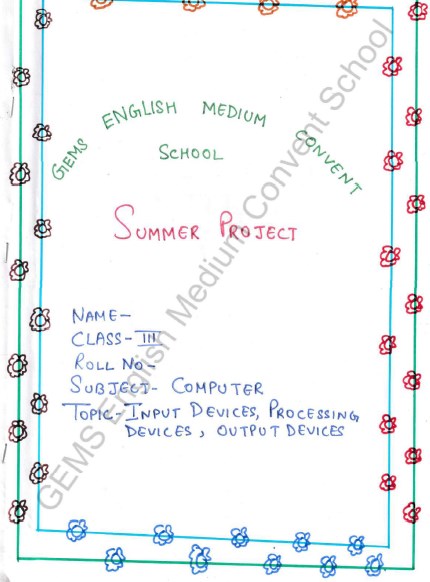 GEMS ENGLISH MEDIUM CONVENT
SCHOOL
SUMMER PROJECT
NAME-
CLASS- III
ROLL NO-
SUBJECT- COMPUTER
TOPIC- INPUT DEVICES, PROCESSING
DEVICES, OUTPUT DEVICES
GEMS English Medium Convent School